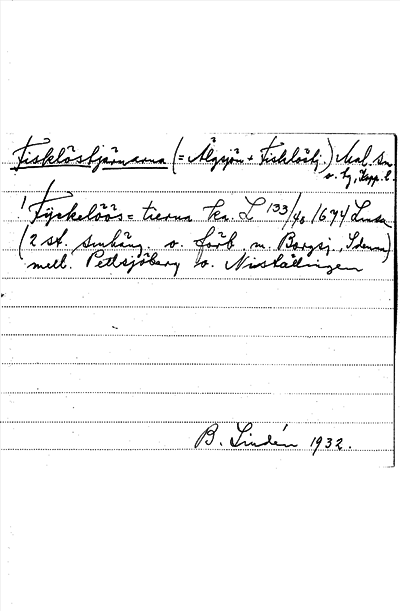 Fisklöstjärnarna (= Älgsjön + Fisklöstj.) Mal. sn
o. tg, Kopp. l.
1 Fÿskelöös=tierna ka. L 133/40 1674 Lmsa
(2 st. smhäng. o. förb. m. Borgsj., Idenna)
mell. Pellsjöberg o. Niställningen
B. Lindén 1932.